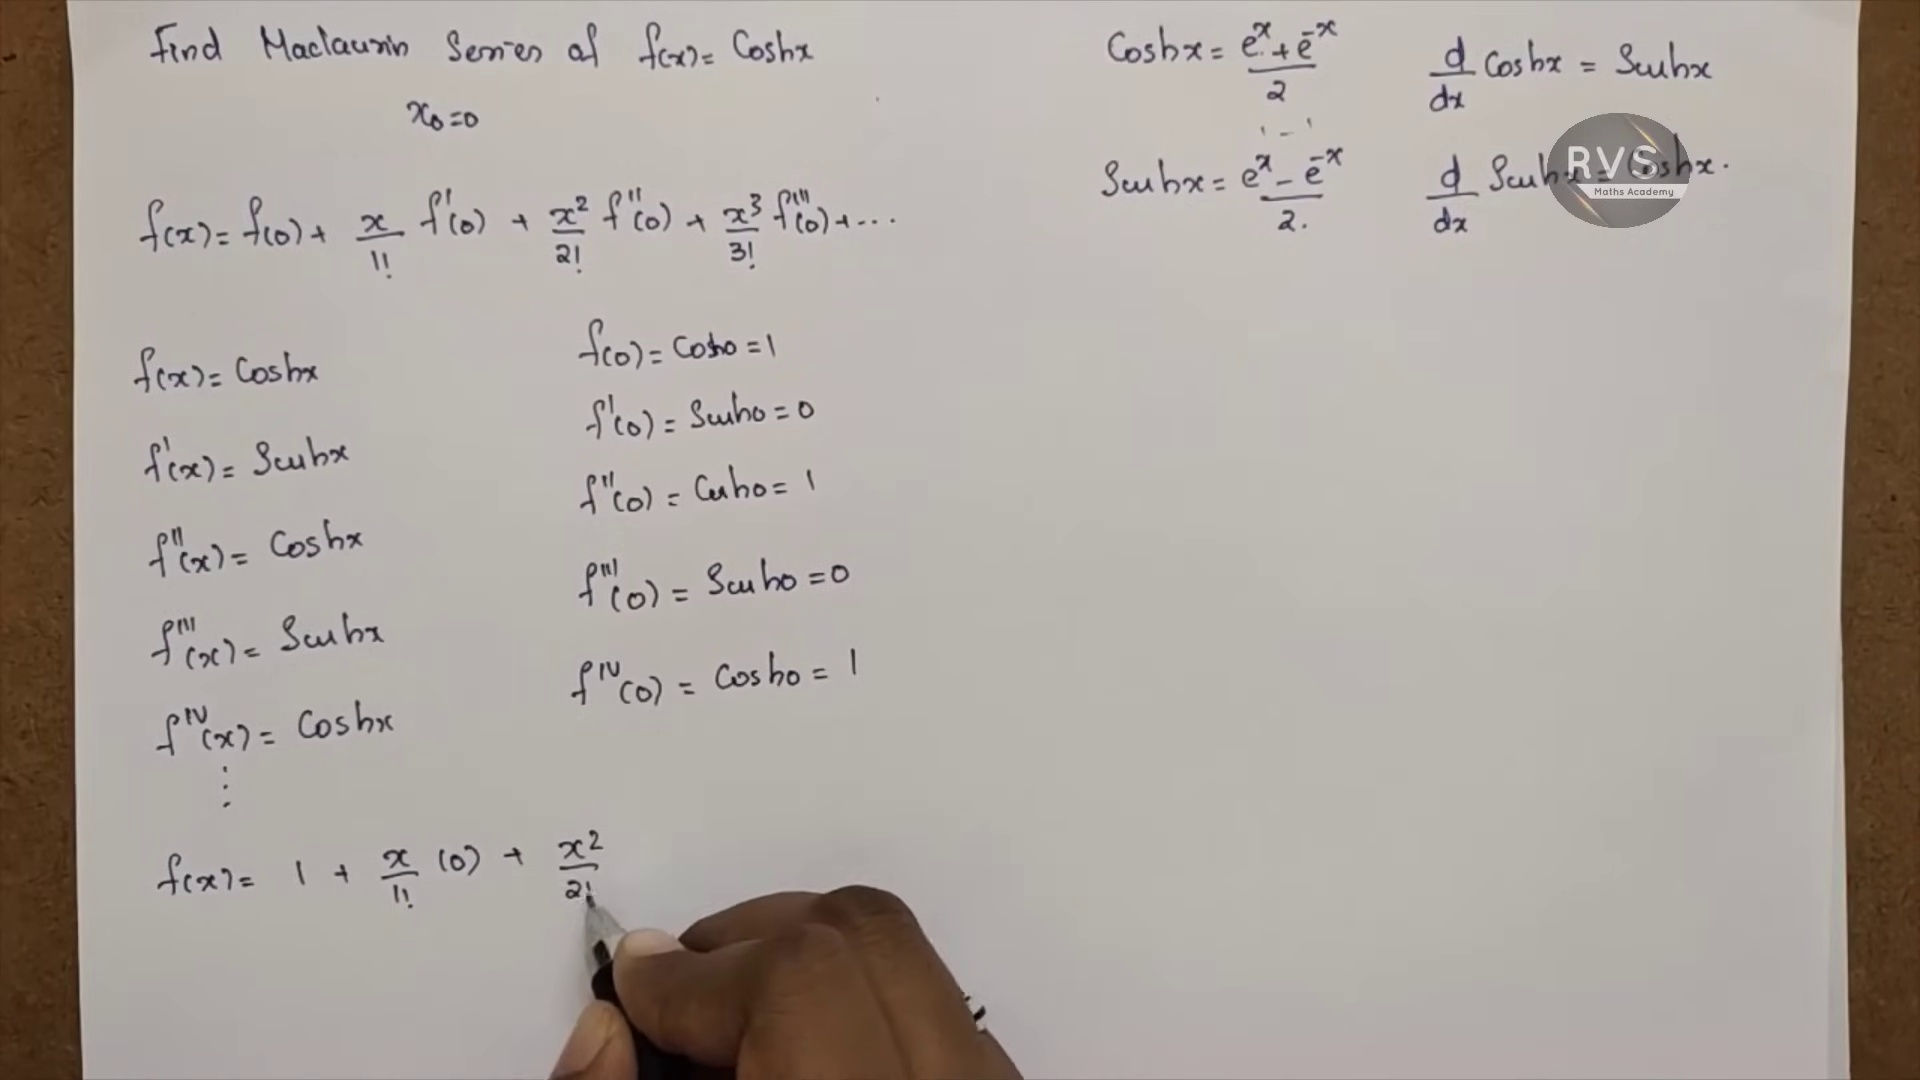 Find Maclaurin Series of f(x) = Coshx
x₀=0
f(x) = f(0) + x/1! f'(0) + x²/2! f''(0) + x³/3! f'''(0) + ...
f(x) = Coshx
f'(x) = Sinhx
f''(x) = Coshx
f'''(x) = Sinhx
f^IV(x) = Coshx
⋮
f(0) = Cosh0 = 1
f'(0) = Sinh0 = 0
f''(0) = Cosh0 = 1
f'''(0) = Sinh0 = 0
f^IV(0) = Cosh0 = 1
f(x) = 1 + x/1! (0) + x²/2!
Coshx = (e^x + e^-x)/2
Sinhx = (e^x - e^-x)/2.
d/dx Coshx = Sinhx
d/dx Sinhx = Coshx.
RVS
Maths Academy